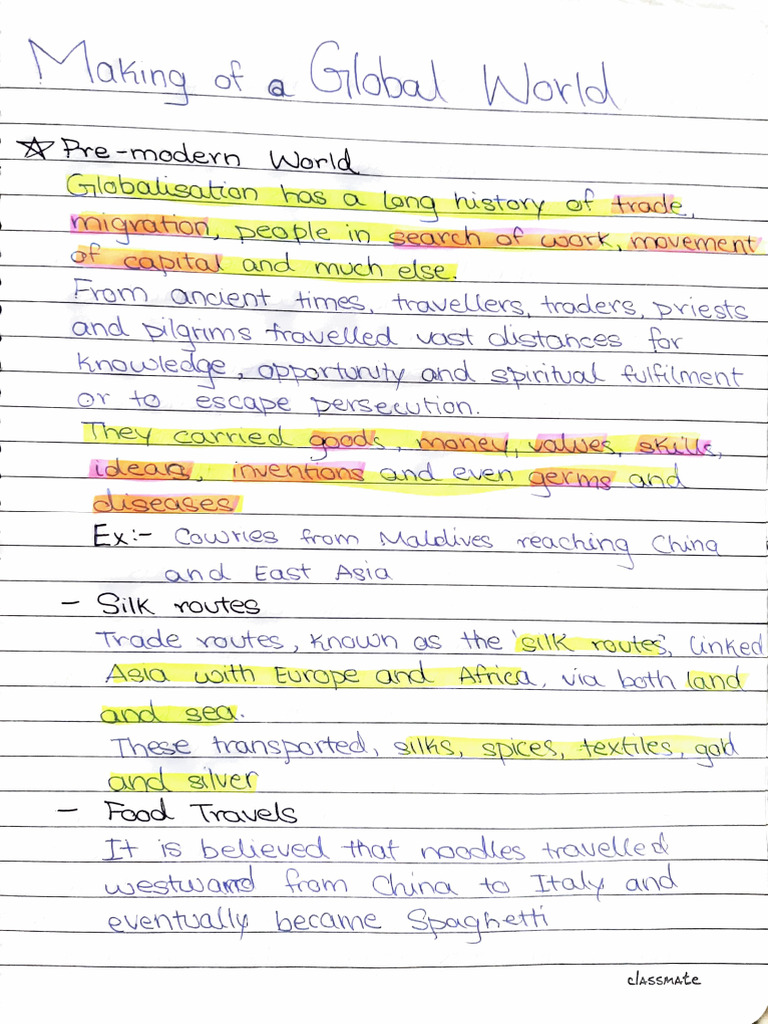 Making of a Global World
☆ Pre-modern World
Globalisation has a long history of trade,
migration, people in search of work, movement
of capital and much else.
From ancient times, travellers, traders, priests
and pilgrims travelled vast distances for
knowledge, opportunity and spiritual fulfilment
or to escape persecution.
They carried goods, money, values, skills,
ideas, inventions and even germs and
diseases
Ex:- Cowries from Maldives reaching China
and East Asia
- Silk routes
Trade routes, known as the 'silk routes', linked
Asia with Europe and Africa, via both land
and sea.
These transported, silks, spices, textiles, gold
and silver
- Food Travels
It is believed that noodles travelled
westward from China to Italy and
eventually became Spaghetti
classmate